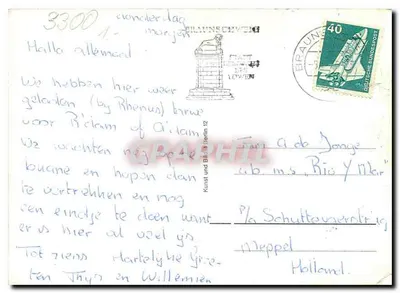 3300
donderdag
morgen
Hallo allemaal:
We hebben hier weer
geladen (by Rhenus)
voor R'dam of A'dam.
We wachten nog
duane en hopen dan
te vertrekken en nog
een eindje te doen want
er is hier al veel ijs
Tot ziens Hartelijke Groe-
ten Thijs en Willemien
BRAUNSCHWEIG
BRAUNS
40
DEUTSCHE BUNDESPOST
Kunst und Bild Berlin 12
Fam. A de Jonge
a/b m.s.
p/a Schuttevaerstr
Meppel
Holland.